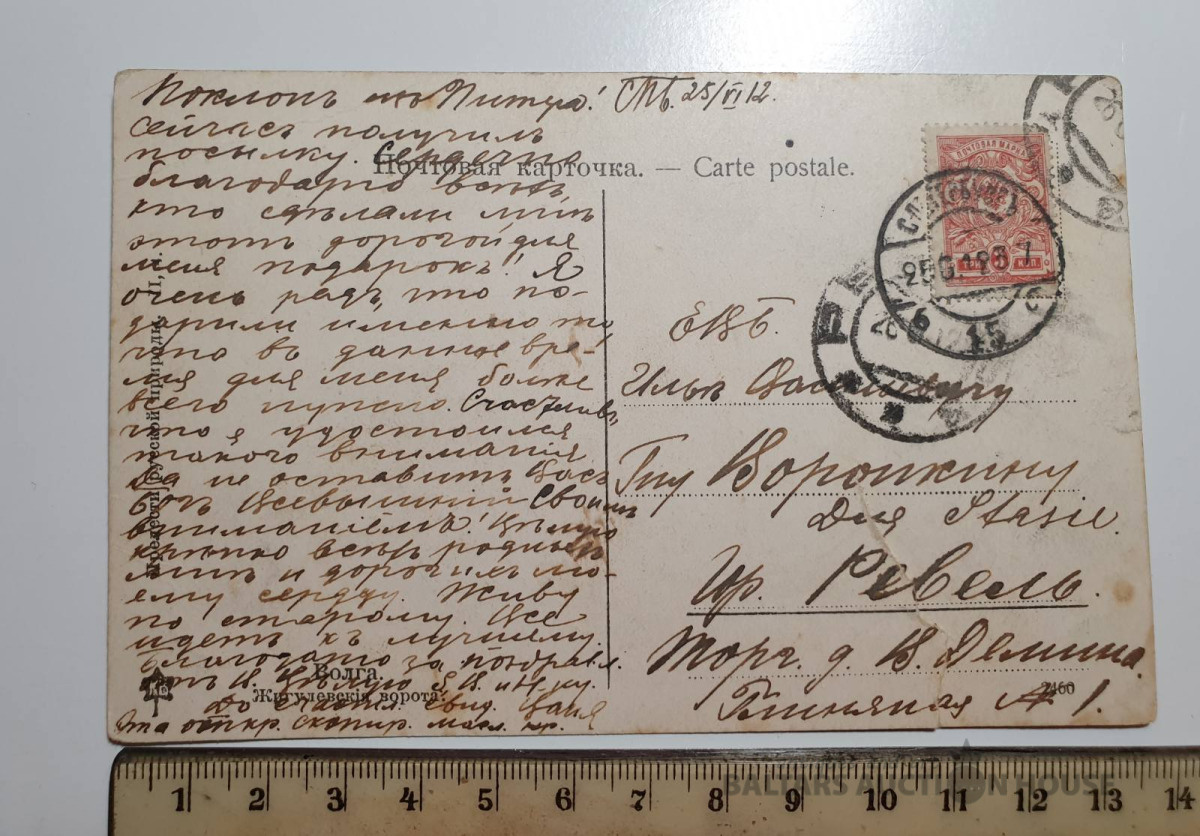 Поклонъ изъ Питера! СПБ. 25/VI 12.
Сейчасъ получилъ
посылку. Сердечно
Почтовая карточка. — Carte postale.
благодарю всѣхъ,
кто сдѣлали мнѣ
этотъ дорогой для
меня подарокъ! Я
очень радъ, что по-
дарили именно то
что въ данное вре-
мя для меня болѣе
всего нужно. Счастливъ,
что я удостоился
такого вниманія
Да не оставитъ Васъ
Богъ Всевышній Своимъ
вниманіемъ! Цѣлую
крѣпко всѣхъ родныхъ
мнѣ и дорогихъ мо-
ему сердцу. Живу
по старому. Все
идетъ къ лучшему.
Благодарю за поздравл.
До Ваня
Эта откр. скопир. масл. кр.
Прелести русской природы.
Волга.
Жигулевскія ворота.
2460
ПОЧТОВАЯ МАРКА
3
С.ПЕТЕРБУРГЪ
25 6 12
15
ЕВБ.
Ильѣ Васильевичу
Гну Воронкину
Для Stasie.
Гор. Ревель.
Торг. д. В. Демина.
Глиняная № 1.
1 2 3 4 5 6 7 8 9 10 11 12 13 14
BALTARS AUCTION HOUSE